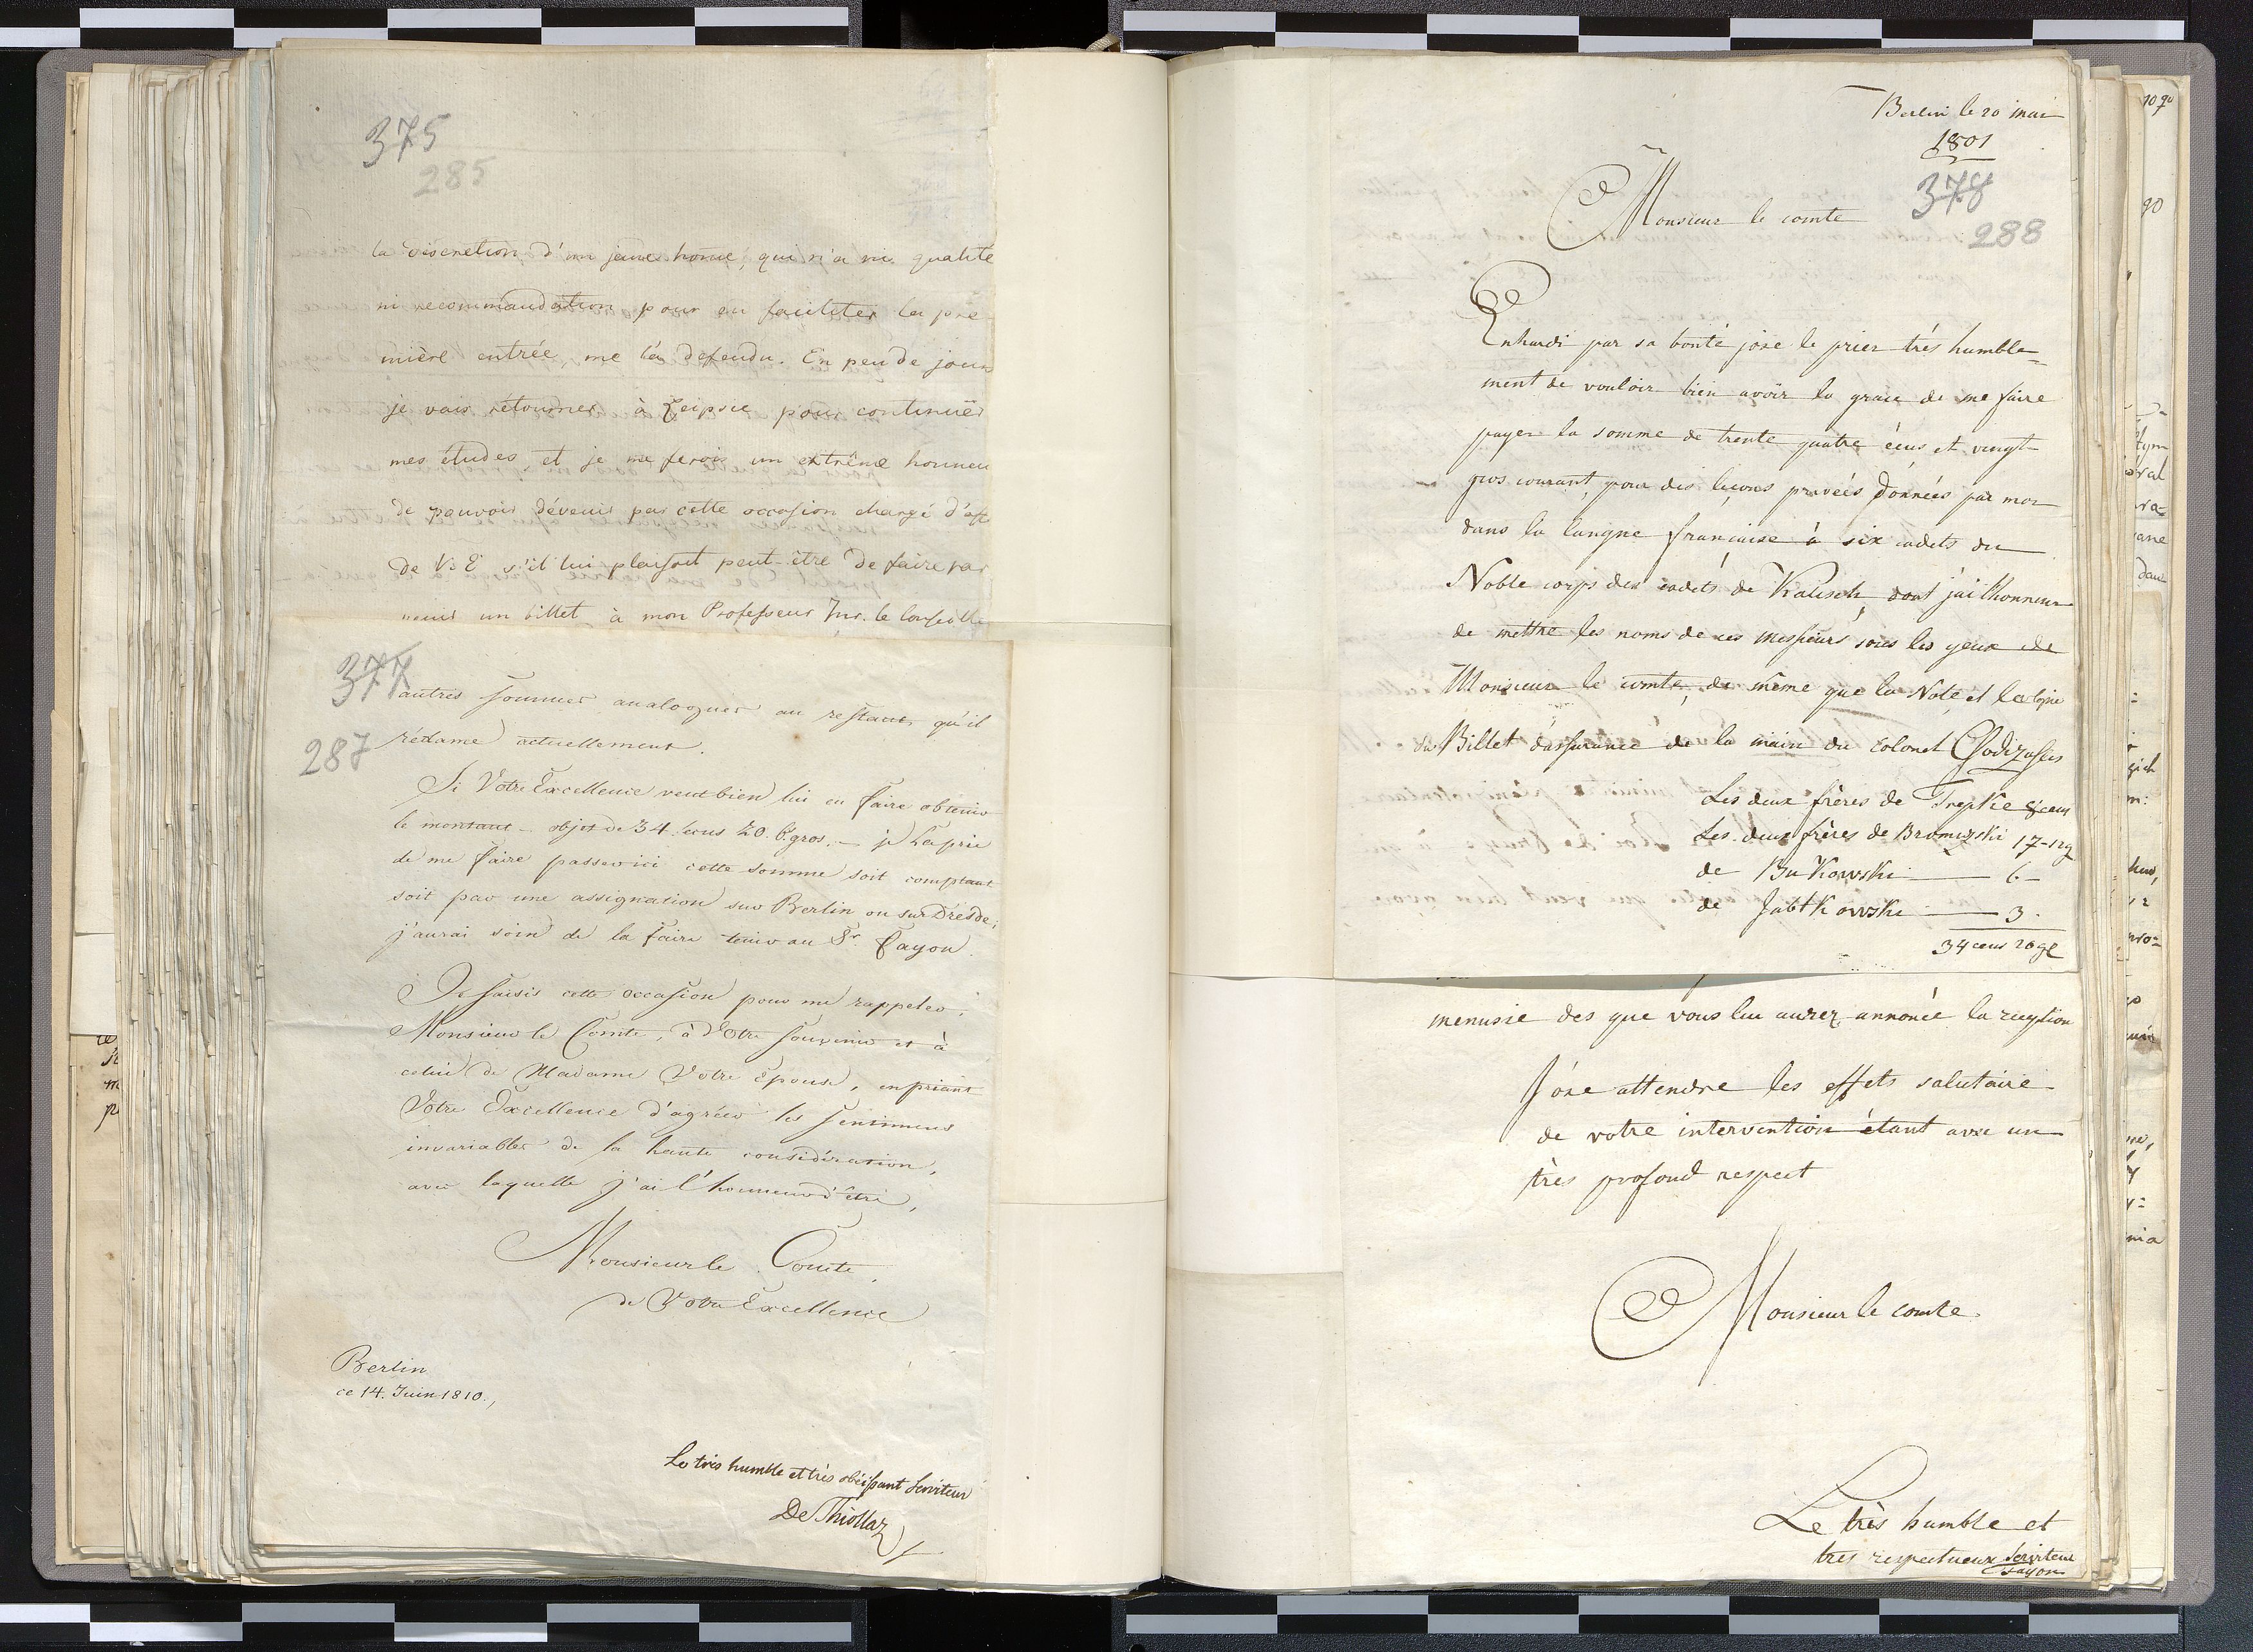 375
285
la discretion d'un jeune home, qui n'a ni qualité
ni recommandation pour en faciliter la pre-
mière entrée, me l'a défendu. En peu de jours
je vais retourner à Leipsic pour continuër
mes études et je me ferois un extrême honneu
de pouvoir dévenir par cette occasion chargé d'aff
de V. E s'il lui plaisoit peut-être de faire par
venir un billet à mon Professeur Jur. le Conseille
377
287
autres sommes analogues au restant, qu'il
réclame actuellement.
Si Votre Excellence veut bien lui en faire obtenir
le montant - objet de 34. écus 20. gros. - je La prie
de me faire passer ici cette somme soit comptant
soit par une assignation sur Berlin ou sur Dresde;
j'aurai soin de la faire tenir au Sr. Fayon.
Je saisis cette occasion pour me rappeler,
Monsieur le Comte, à Votre souvenir et à
celui de Madame Votre Epouse, en priant
Votre Excellence d'agréer les sentimens
invariables de la haute considération,
avec laquelle j'ai l'honneur d'être,
Monsieur le Comte,
de Votre Excellence
Berlin
ce 14. Juin 1810.,
Le très humble et très obéissant Serviteur
De Thiollaz
Berlin le 20 mai
1801
378
288
Monsieur le comte
Enhardi par sa bonté jose le prier trés humble=
ment de vouloir bien avoir la grace de me faire
payer la somme de trente quatre écus et vingt
gros courant, pour des leçons privées données par moi
dans la langue francaise à six cadets du
Noble corps des cadets de Kalisch, dont j'ai l'honneur
de mettre les noms de ces messieurs sous les yeux de
Monsieur le comte, de même que la Note et la copie
du Billet d'assurance de la main du colonel Chodizasen
Les deux frères de Trepke 8 ecus
Les deux frères de Bromirski 17-12g
de Bukowski 6-
de Jabtkowski 3.
34 ecus 20 g
menusie des que vous lui aurez annoncé la reception
J'ose attendre les effets salutaire
de votre intervention étant avec un
très profond respect
Monsieur le comte
Le très humble et
tres respectueux Serviteur
Fayon